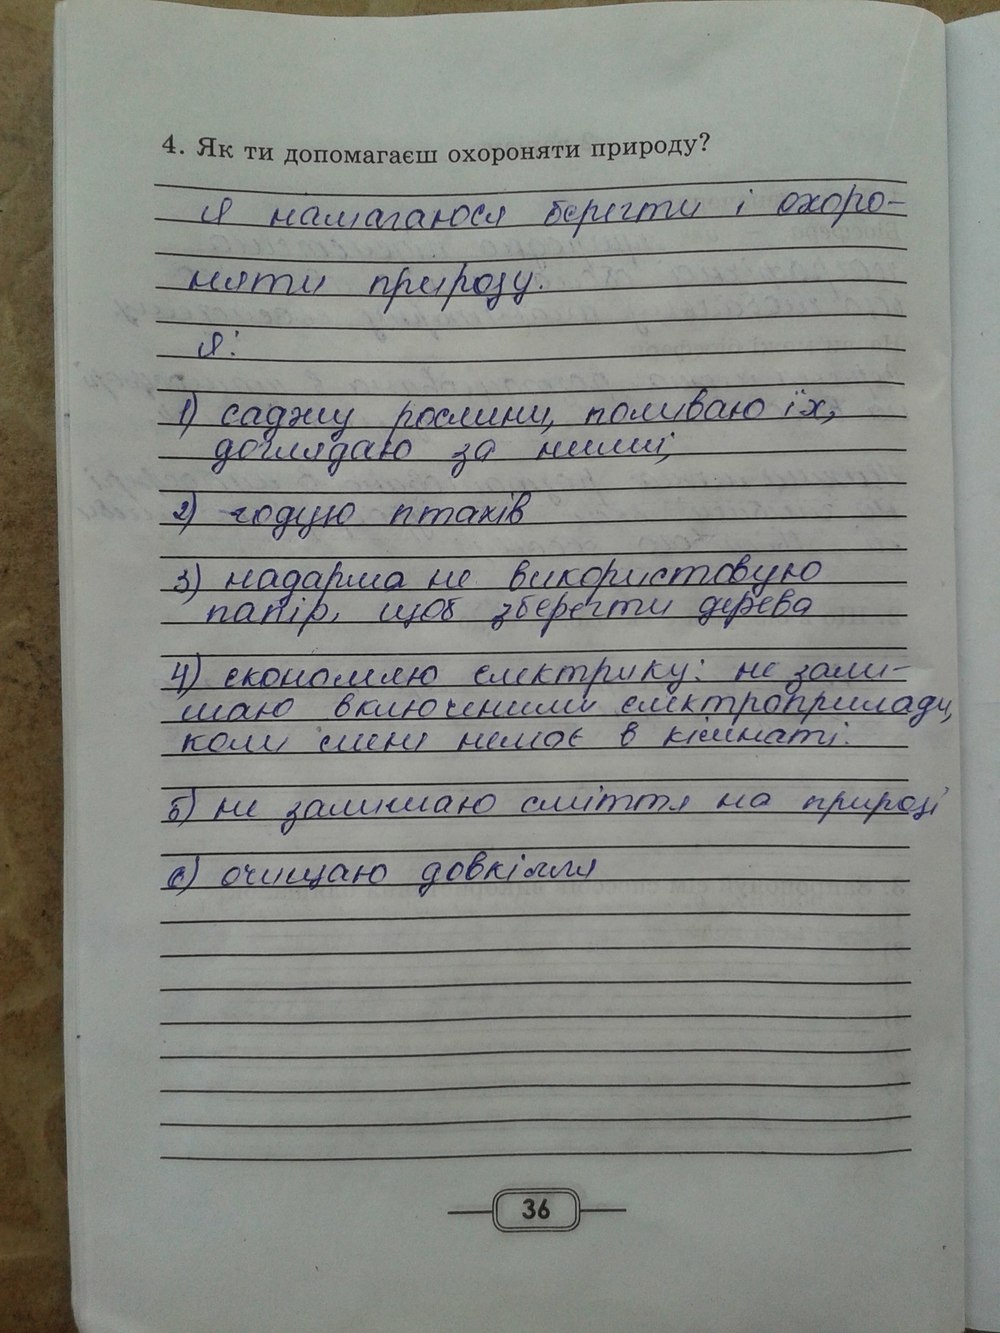 4. Як ти допомагаєш охороняти природу?
Я намагаюся берегти і охоро-
няти природу.
Я:
1) саджу рослини, поливаю їх,
доглядаю за ними;
2) годую птахів
3) надарма не використовую
папір, щоб зберегти дерева
4) економлю електрику: не зали-
шаю включеними електроприлади,
коли мене немає в кімнаті.
5) не залишаю сміття на природі
6) очищаю довкілля
36